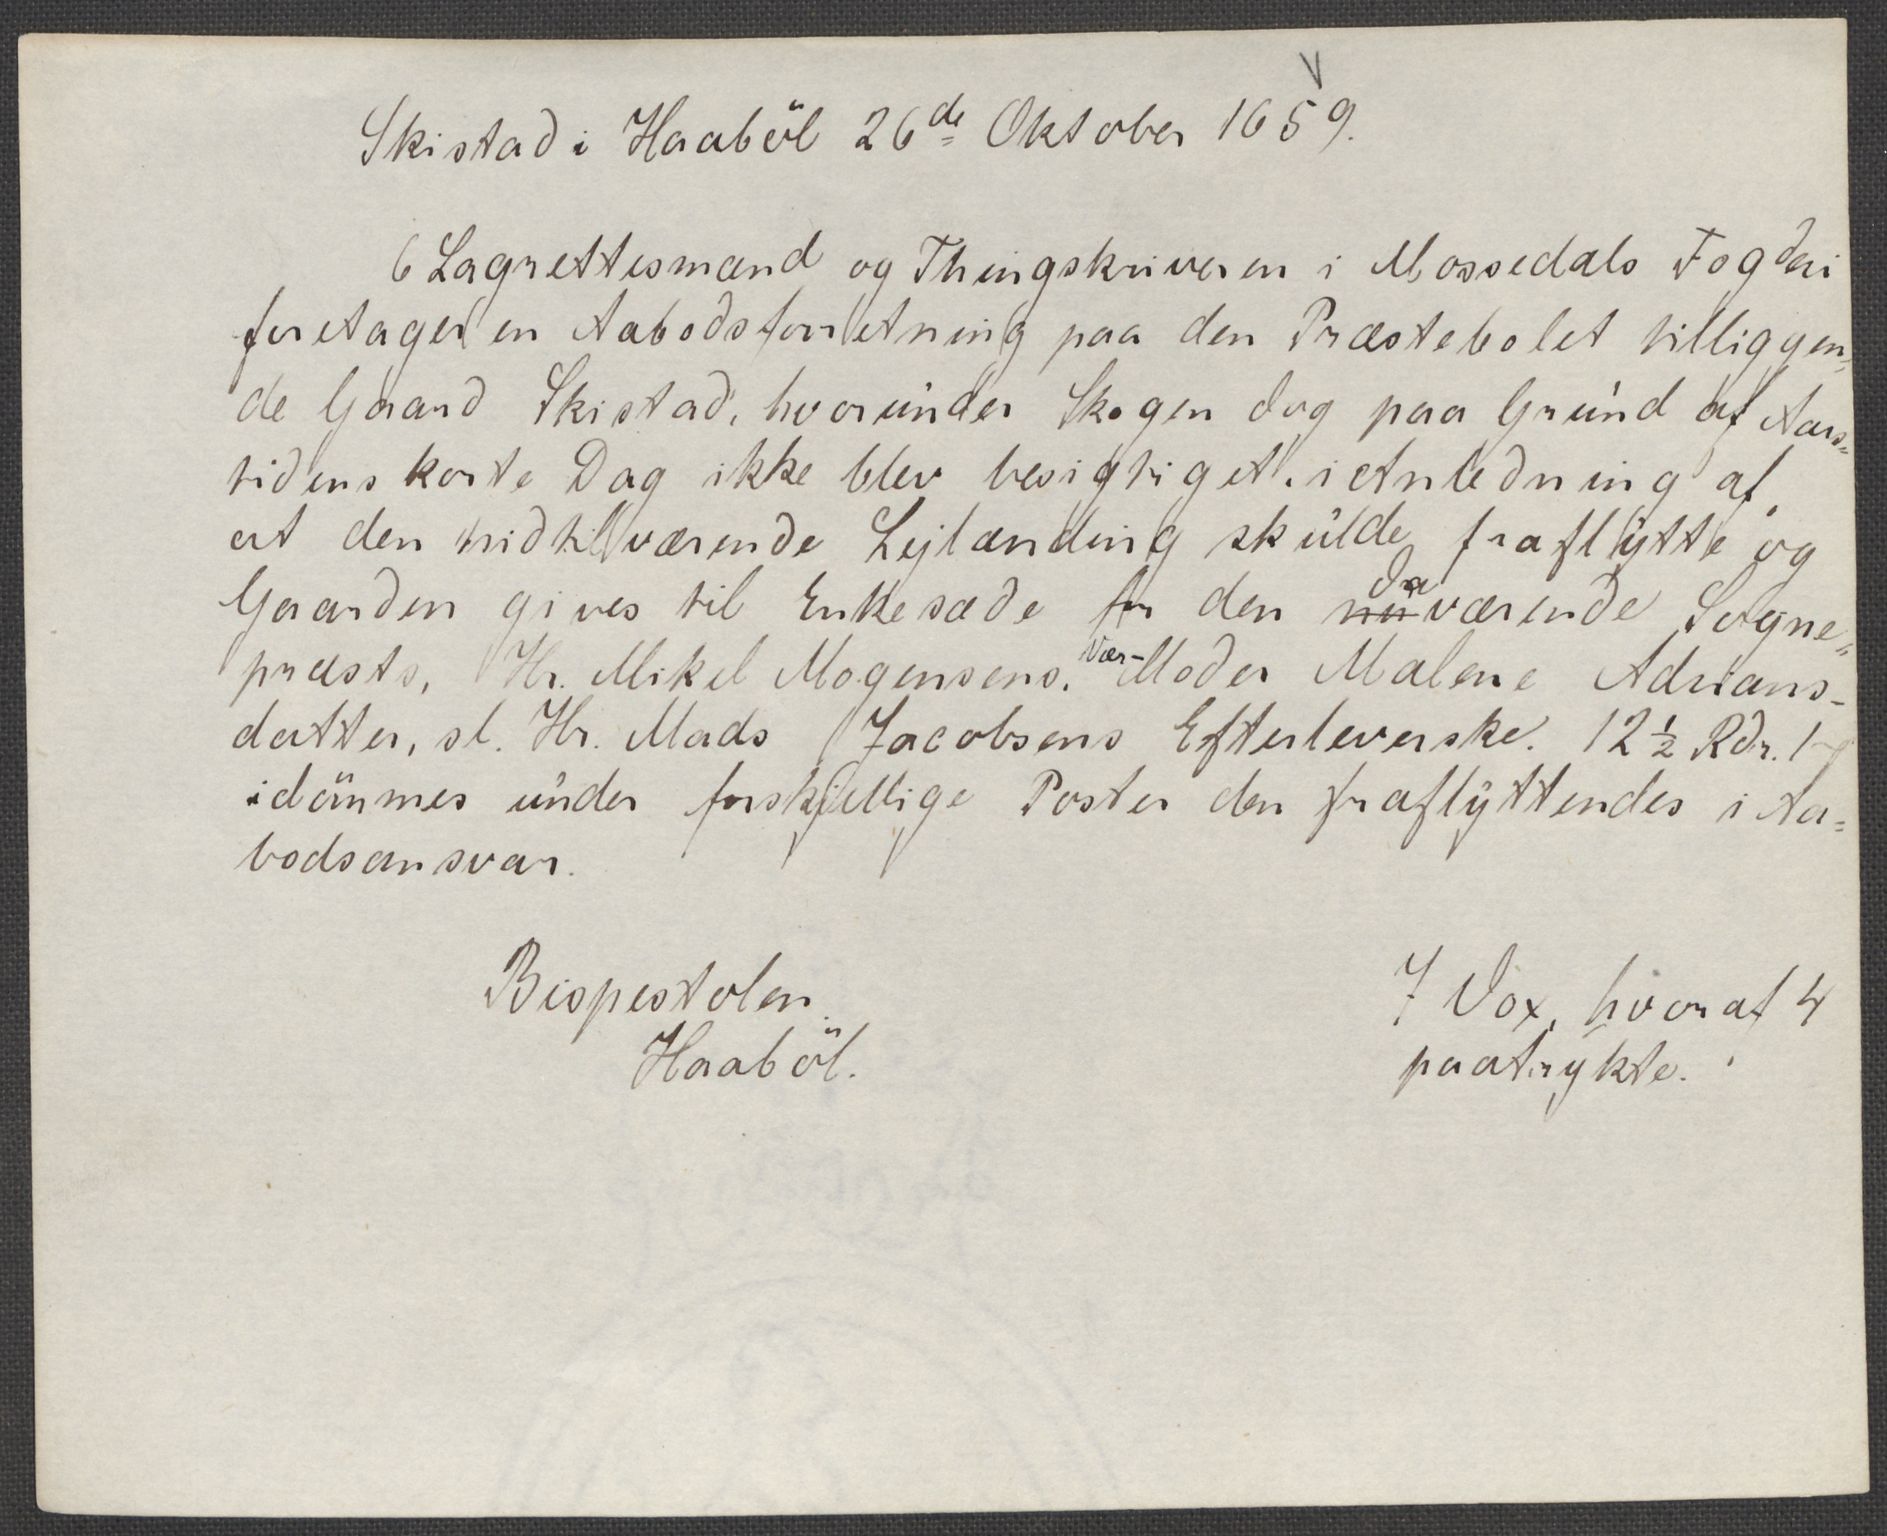 Skistad i Haaböl 26de Oktober 1659.
6 Lagrettesmænd og Thingskriveren i Mossedals Fogderi
foretager en Aabodsforretning paa den Præstebolet tilliggen=
de Gaard Skistad, hvorunder Skogen dog paa Grund af Aars=
tidens korte Dag ikke blev besigtiget, i Anledning af
at den hidtilværende Lejlænding skulde fraflytte og
Gaarden gives til Enkesæde for den nu da værende Sogne=
præsts, Hr. Mikel Mogensens, Vær-Moder Malene Adrians-
datter, sl. Hr. Mads Jacobsens Efterleverske. 12 ½ Rdr. 1
idömmes under forskjellige Poster den fraflyttendes i Aa=
bodsansvar.
Bispestolen.
Haaböl.
7 Vox, hvoraf 4
paatrykte.